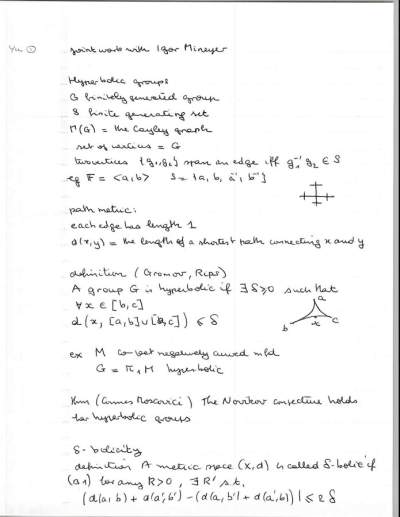 Yu ②
joint work with Igor Mineyev
Hyperbolic groups
G finitely generated group
S finite generating set
Γ(G) = the Cayley graph
set of vertices = G
two vertices {g₁,g₂} span an edge iff g₁⁻¹ g₂ ∈ S
eg F = <a,b> S = {a, b, a⁻¹, b⁻¹}
path metric:
each edge has length 1
d(x,y) = the length of a shortest path connecting x and y
definition (Gromov, Rips)
A group G is hyperbolic if ∃ δ ≥ 0 such that
∀ x ∈ [b,c]
d(x, [a,b] ∪ [a,c]) ≤ δ
a
b x c
ex M compact negatively curved mfld
G = π₁M hyperbolic
thm (Connes Moscovici) The Novikov conjecture holds
for hyperbolic groups
δ-bolicity
definition A metric space (X,d) is called δ-bolic if
(a1) for any R>0, ∃ R' s.t.
|d(a,b) + d(a',b') - (d(a,b') + d(a',b))| ≤ 2δ